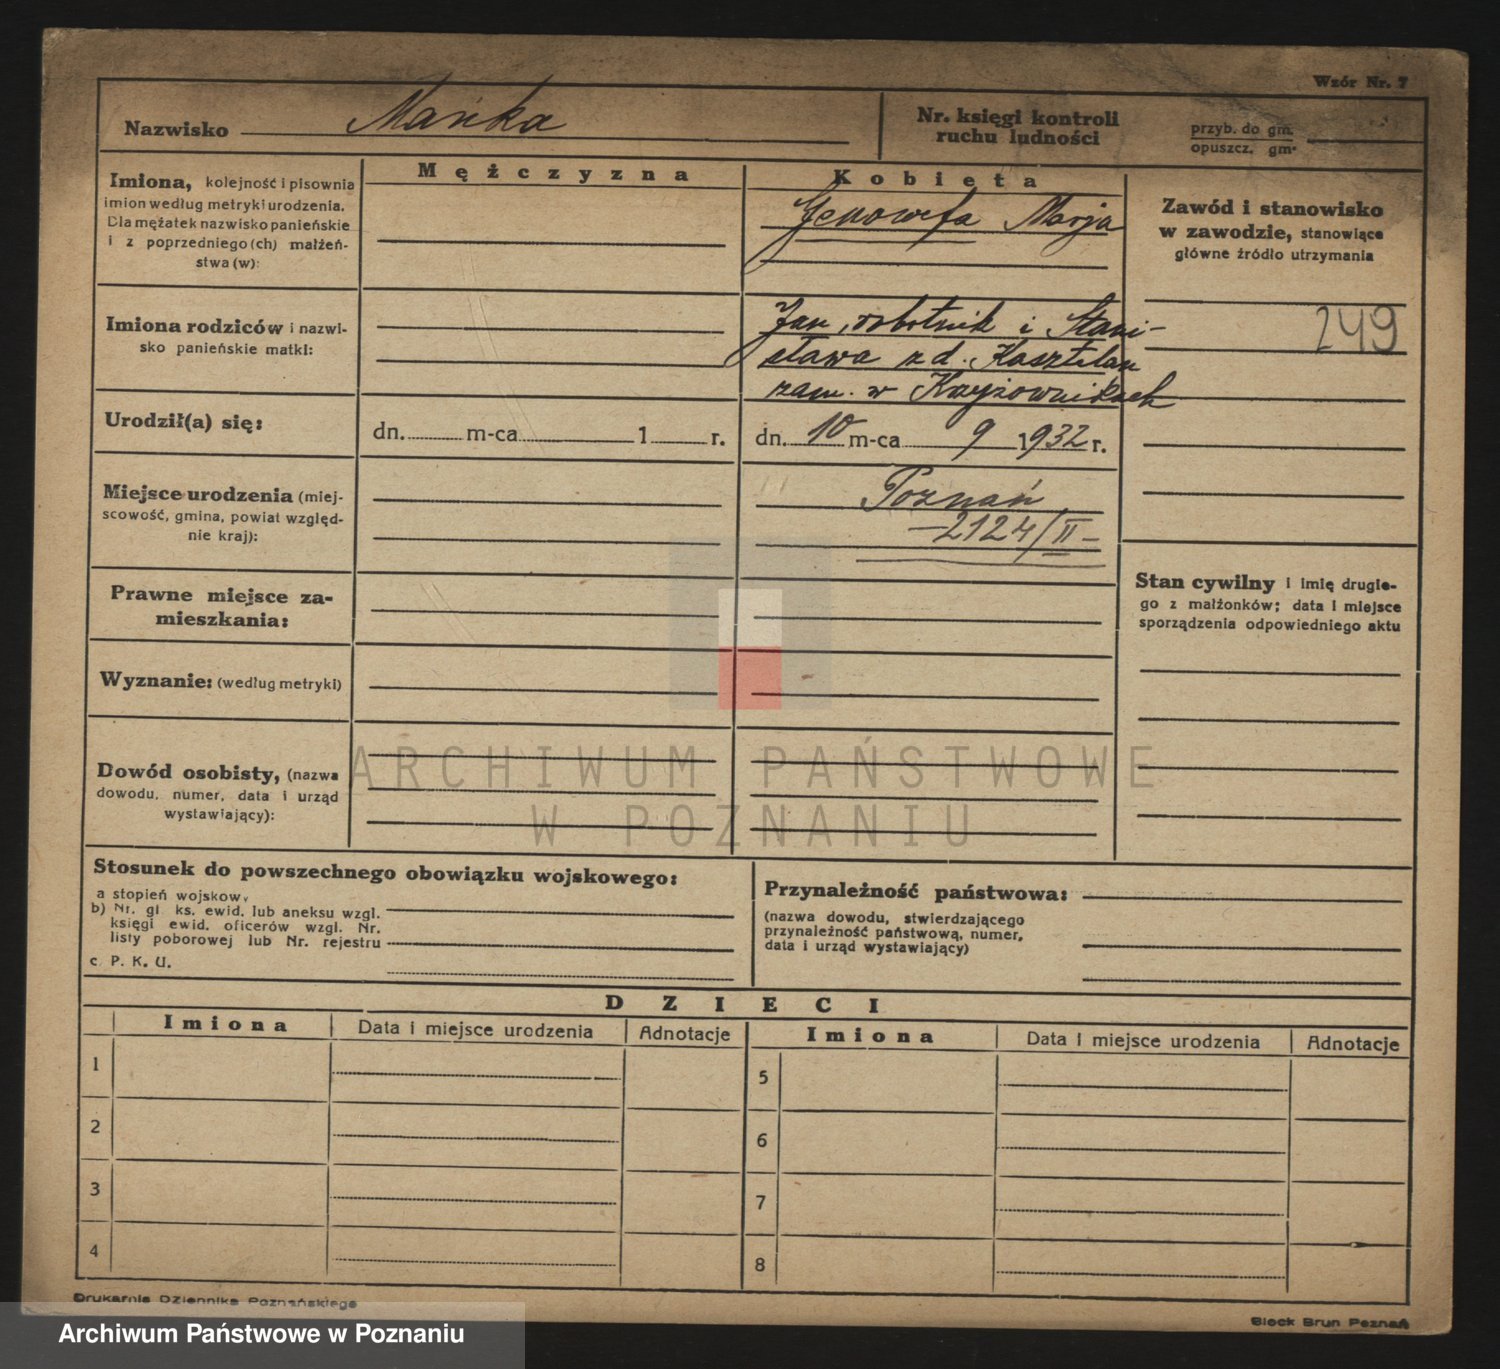 Wzór Nr. 7
Nazwisko Mańka
Nr. księgi kontroli
ruchu ludności
przyb. do gm.
opuszcz. gm.
Mężczyzna
Kobieta
Imiona, kolejność i pisownia
imion według metryki urodzenia.
Dla mężatek nazwisko panieńskie
i z poprzedniego (ch) małżeń-
stwa (w):
Genowefa Marja
Zawód i stanowisko
w zawodzie, stanowiące
główne źródło utrzymania
249
Imiona rodziców i nazwi-
sko panieńskie matki:
Jan, robotnik i Stani-
sława z d. Kasztelan
zam. w Krzyżownikach
Urodził(a) się:
dn. m-ca 1 r.
dn. 10 m-ca 9 1932 r.
Miejsce urodzenia (miej-
scowość, gmina, powiat wzgléd-
nie kraj):
Poznań
—2124/II—
Prawne miejsce za-
mieszkania:
Stan cywilny i imię drugie-
go z małżonków; data i miejsce
sporządzenia odpowiedniego aktu
Wyznanie: (według metryki)
Dowód osobisty, (nazwa
dowodu, numer, data i urząd
wystawiający):
ARCHIWUM PAŃSTWOWE
W POZNANIU
Stosunek do powszechnego obowiązku wojskowego:
a stopień wojskow.
b) Nr. gl. ks. ewid. lub aneksu wzgl.
księgi ewid. oficerów wzgl. Nr.
listy poborowej lub Nr. rejestru
c. P. K. U.
Przynależność państwowa:
(nazwa dowodu, stwierdzającego
przynależność państwową, numer,
data i urząd wystawiający)
DZIECI
Imiona Data i miejsce urodzenia Adnotacje Imiona Data i miejsce urodzenia Adnotacje
1 5
2 6
3 7
4 8
Drukarnia Dziennika Poznańskiego
Block Brun Poznań
Archiwum Państwowe w Poznaniu